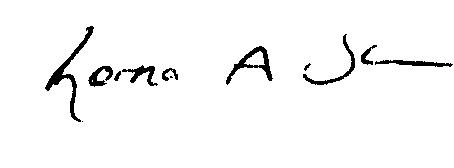 Lorna A